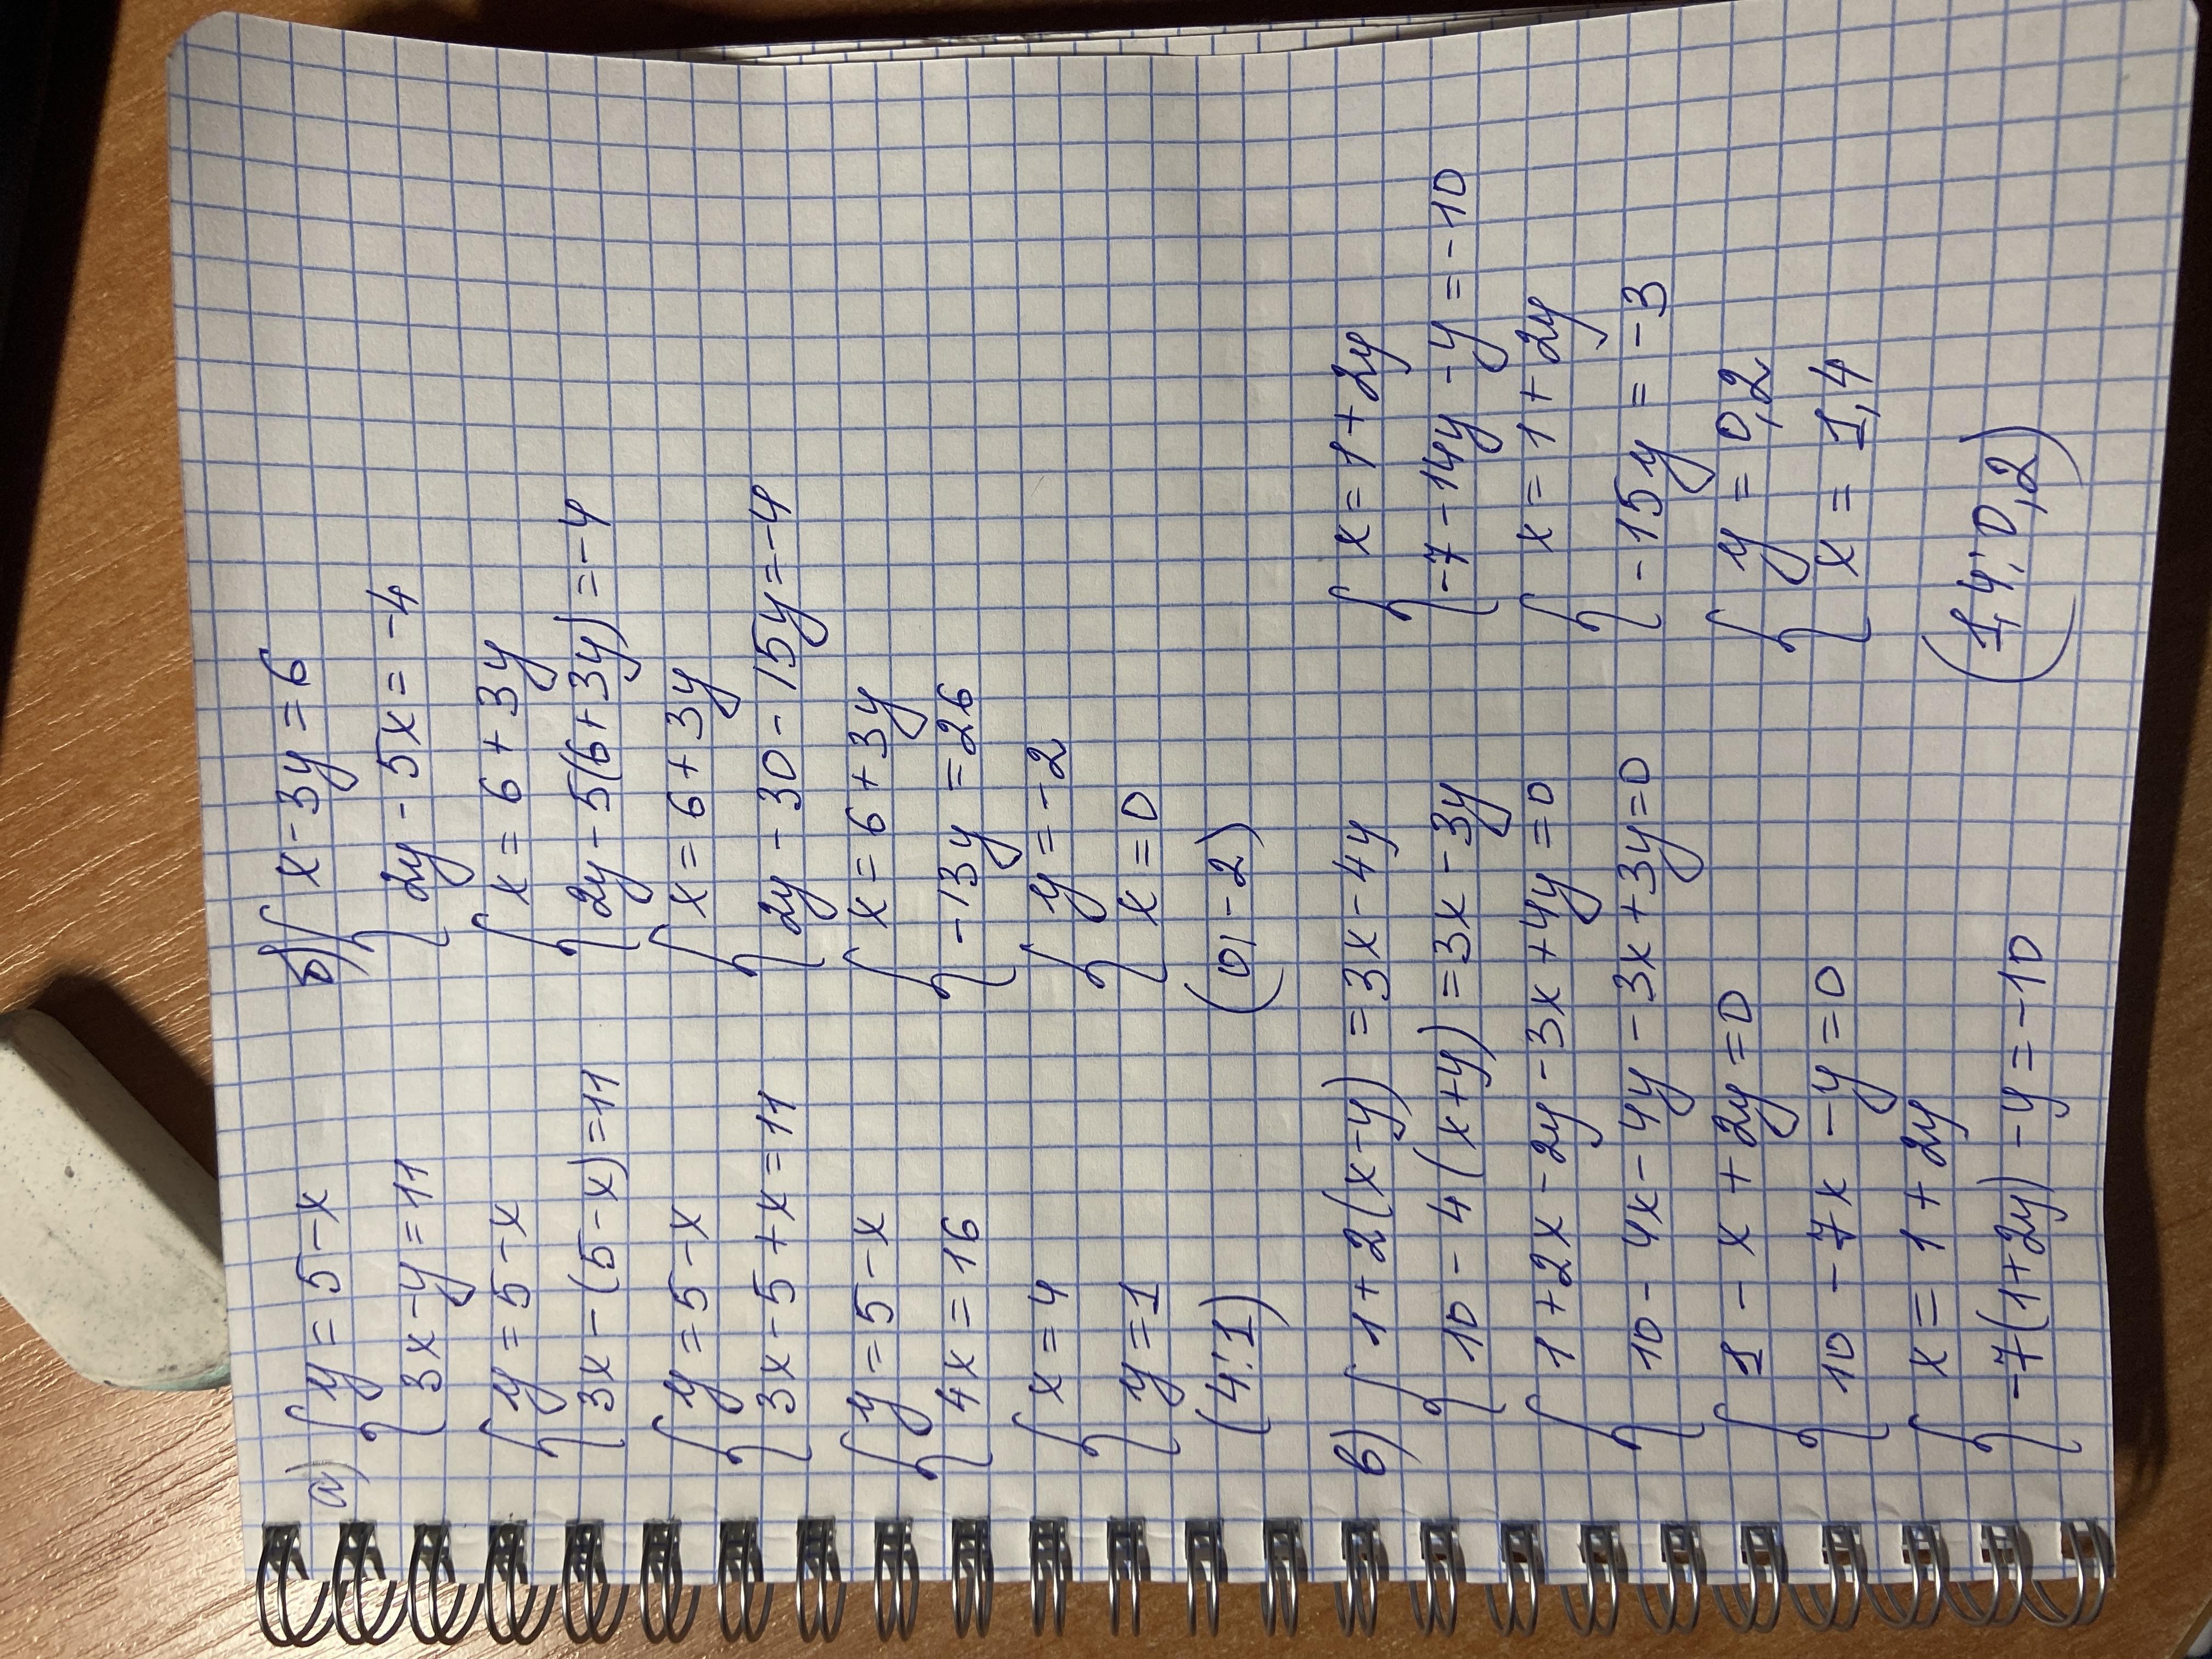 а) { y = 5 - x
{ 3x - y = 11
{ y = 5 - x
{ 3x - (5 - x) = 11
{ y = 5 - x
{ 3x - 5 + x = 11
{ y = 5 - x
{ 4x = 16
{ x = 4
{ y = 1
(4; 1)
б) { x - 3y = 6
{ 2y - 5x = -4
{ x = 6 + 3y
{ 2y - 5(6 + 3y) = -4
{ x = 6 + 3y
{ 2y - 30 - 15y = -4
{ x = 6 + 3y
{ -13y = 26
{ y = -2
{ x = 0
(0; -2)
в) { 1 + 2(x - y) = 3x - 4y
{ 10 - 4(x + y) = 3x - 3y
{ 1 + 2x - 2y - 3x + 4y = 0
{ 10 - 4x - 4y - 3x + 3y = 0
{ 1 - x + 2y = 0
{ 10 - 7x - y = 0
{ x = 1 + 2y
{ -7(1 + 2y) - y = -10
{ x = 1 + 2y
{ -7 - 14y - y = -10
{ x = 1 + 2y
{ -15y = -3
{ y = 0,2
{ x = 1,4
(1,4; 0,2)